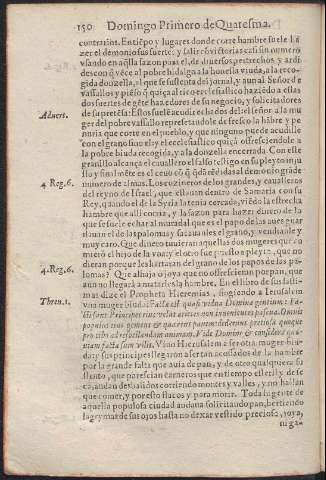 150 Domingo Primero de Quaresma.
contrarios. En tiẽpo y lugares donde corre hambre suele ha
zer el demonio su suerte, y salir cõ victorias casi sin numero
vsando en aq̃lla sazon para el de diuersos pertrechos y ardi
des con q̃ vẽce al pobre hidalgo a la honesta viuda, a la reco-
gida donzella, al que se sustenta del jornal, y aun al Señor de
vassallos, y piẽso q̃ quiça al rico eclesiastico haziẽdo a estas
dos suertes de gẽte hazedores de su negocio, y solicitadores
de su pretẽsa: Estos suele acudir
Aduert. muger del pobre vassallo representandole de fresco la hãbre y pe
nuria que corre en el pueblo, y que ninguno puede acudille
con el grano sino el y el ecclesiastico quiça offresciendole a
la pobre biuda recogida, y a la donzella encerrada. Con este
granillo alcança el cauallero el falso testigo en su pleyto injus
4 Reg. 6. numero de almas. Los vezinos de los grandes, y caualleros
del reyno de Israel, que estauan dentro de Samaria con su
Rey, quando el de la Syria la tenia cercada, viẽdo la estrecha
hambre que alli corria, y la sazon para hazer dinero de la
que se suele echar al muradal que es el papo de las aues guar
dauan el de las palomas y sacauan les el grano, y vendian le y
muy caro. Que dinero tuuieran aquellas dos mugeres que co
mierõ el hijo de la vna, y el otro fue puesto en pleyto, que no
4. Reg. 6. dieran porque les hartaran del grano de los papos de las pa-
lomas? Que alhaja o joya que no offrescieran por pan, que
aun no llegara a matarles la hambre. En el libro de sus lasti-
Thren. 1. mas dize el Propheta Hieremias, fingiendo a Ierusalem
vna muger biuda: Facta est quasi vidua Domina gentium: Fa-
cti sunt Principes eius velut arietes non inuenientes pascua. Omnis
populus eius gemens & quærens panem: dederunt preciosa quæque
pro cibo ad refocillandam animam. Vide Domine & considera quo-
niam facta sum vilis. Vino Hierusalem a ser otra muger biu-
da, y sus principes llegaron a ser tan acossados de la hambre
por la grande falta que auia de pan, y de otro qualquiera su
stento, que parescian carneros que en tiempo esteril, y de se
ca, andan desbalidos corriendo montes y valles, y no hallan
que comer, y por esto flacos y para morir. Toda la gente de
aquella populosa ciudad andaua solicitando pan, bertiendo
lagrymas de sus ojos hasta no dexar vestido precioso, joya,
ni ga-